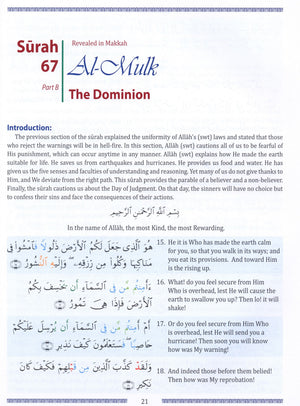 Sūrah
67
Part B
Revealed in Makkah
Al-Mulk
The Dominion
Introduction:
The previous section of the sūrah explained the uniformity of Allāh's (swt) laws and stated that those
who reject the warnings will be in hell-fire. In this section, Allāh (swt) cautions all of us to be fearful of
His punishment, which can occur anytime in any manner. Allāh (swt) explains how He made the earth
suitable for life. He saves us from earthquakes and hurricanes. He provides us food and water. He has
given us the five senses and faculties of understanding and reasoning. Yet many of us do not give thanks to
Him, and We deviate from the right path. This sūrah provides the parable of a believer and a non-believer.
Finally, the sūrah cautions us about the Day of Judgment. On that day, the sinners will have no choice but
to confess their sins and face the consequences of their actions.
بِسْمِ اللَّهِ الرَّحْمَٰنِ الرَّحِيمِ
In the name of Allāh, the most Kind, the most Rewarding.
هُوَ ٱلَّذِى جَعَلَ لَكُمُ ٱلْأَرْضَ ذَلُولًا فَٱمْشُوا۟ فِى
مَنَاكِبِهَا وَكُلُوا۟ مِن رِّزْقِهِۦ ۖ وَإِلَيْهِ ٱلنُّشُورُ
15. He it is Who has made the earth calm
for you, so that you walk in its ways; and
you eat its provisions. And toward Him
is the rising up.
ءَأَمِنتُم مَّن فِى ٱلسَّمَآءِ أَن يَخْسِفَ بِكُمُ
ٱلْأَرْضَ فَإِذَا هِىَ تَمُورُ
16. What! do you feel secure from Him
Who is overhead, lest He will cause the
earth to swallow you up? Then lo! it will
shake!
أَمْ أَمِنتُم مَّن فِى ٱلسَّمَآءِ أَن يُرْسِلَ عَلَيْكُمْ
حَاصِبًا ۖ فَسَتَعْلَمُونَ كَيْفَ نَذِيرِ
17. Or do you feel secure from Him Who
is overhead, lest He will send you a
hurricane! Then soon you will know
how was My warning!
وَلَقَدْ كَذَّبَ ٱلَّذِينَ مِن قَبْلِهِمْ فَكَيْفَ كَانَ
نَكِيرِ
18. And indeed those before them belied!
Then how was My reprobation!
21